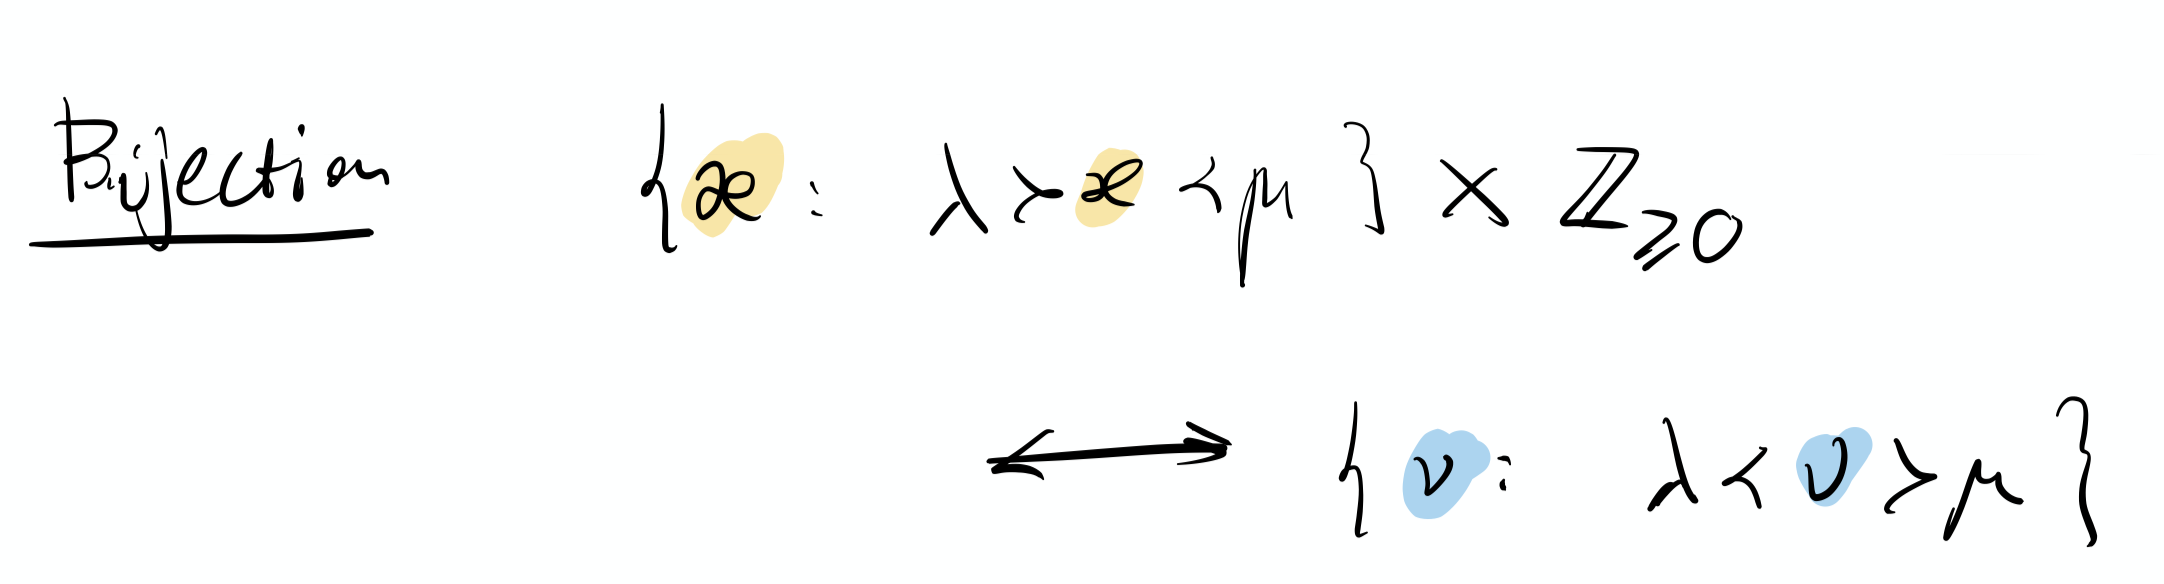 Bijection {æ: λ ≻ æ ≺ μ} × ℤ≥0
⟷ {ν: λ ≺ ν ≻ μ}